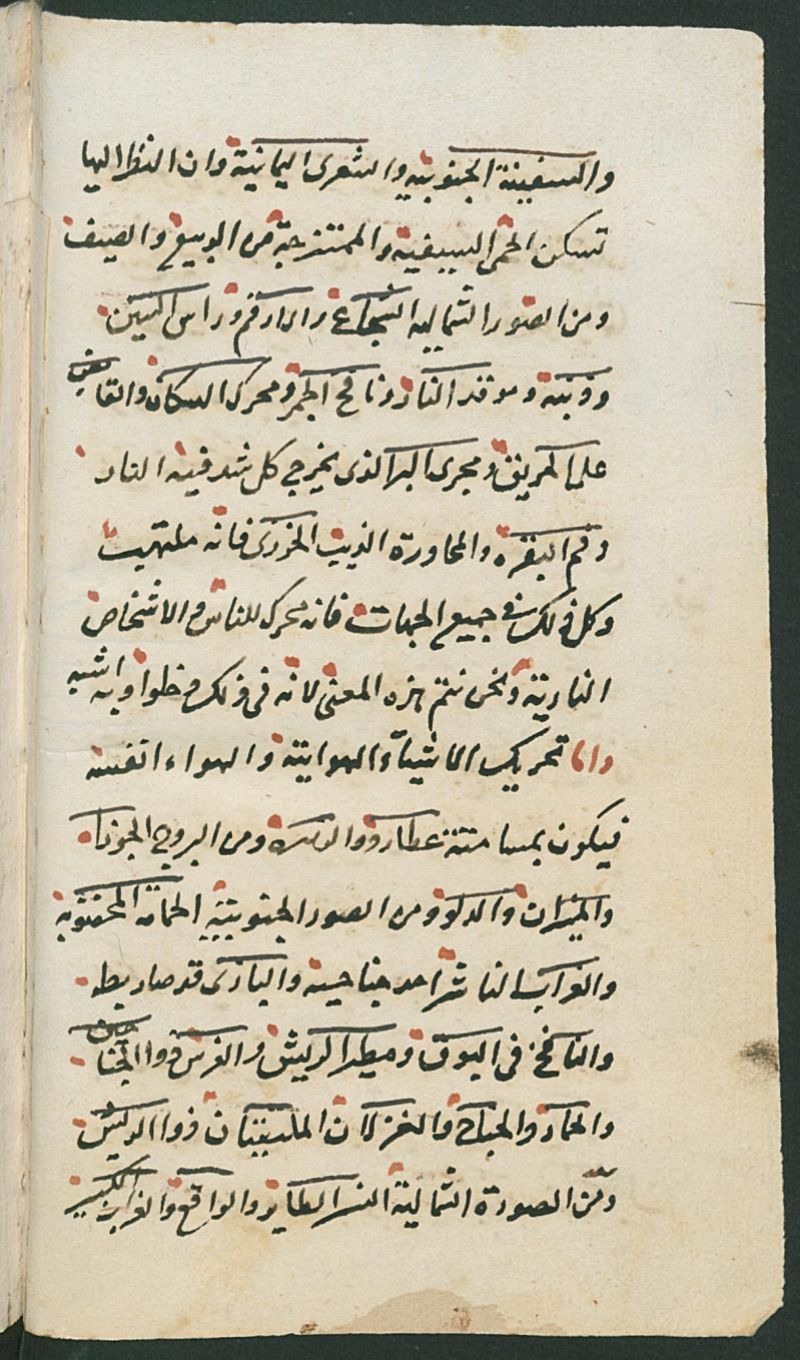 والسفينة الجنوبية والشعرى اليمانية وان النظر اليها
تسكن الحمى السيفية والممتزجة من الربيع والصيف
ومن الصور الشمالية الشجاع والارقم وراس التنين
وذنبه وموقد النار ونافخ الجمر ومحرك السكان والقابض
على الحريق ومجرى البر الذى يخرج كل شدقيه النار
وفم البقره والمحاورة الذيب الخزرى فانه ملتهب
وكل ذلك فى جميع الجهات فانه محرك للناس والاشخاص
النارية ونحن نتم هذه المعنى لانه فى ذلك خلوا وبه اشبه
واما تحريك الاشياء والهوايته والهواء انفسه
فيكون بمسامتة عطارد والزهره ومن البروج الجوزا
والميزان والدلو ومن الصور الجنوبية الحمامة المحصوبة
والغراب الناشر احد جناحيه والبازى قد صاد بطه
والنافخ فى البوق ومطير الريش والفرس ذوا الجناحين
والحمار والجناح والغزلان الملتفتان ذوا الريش
ومن الصورة الشمالية النسر الطاير والواقع والغراب الكبير